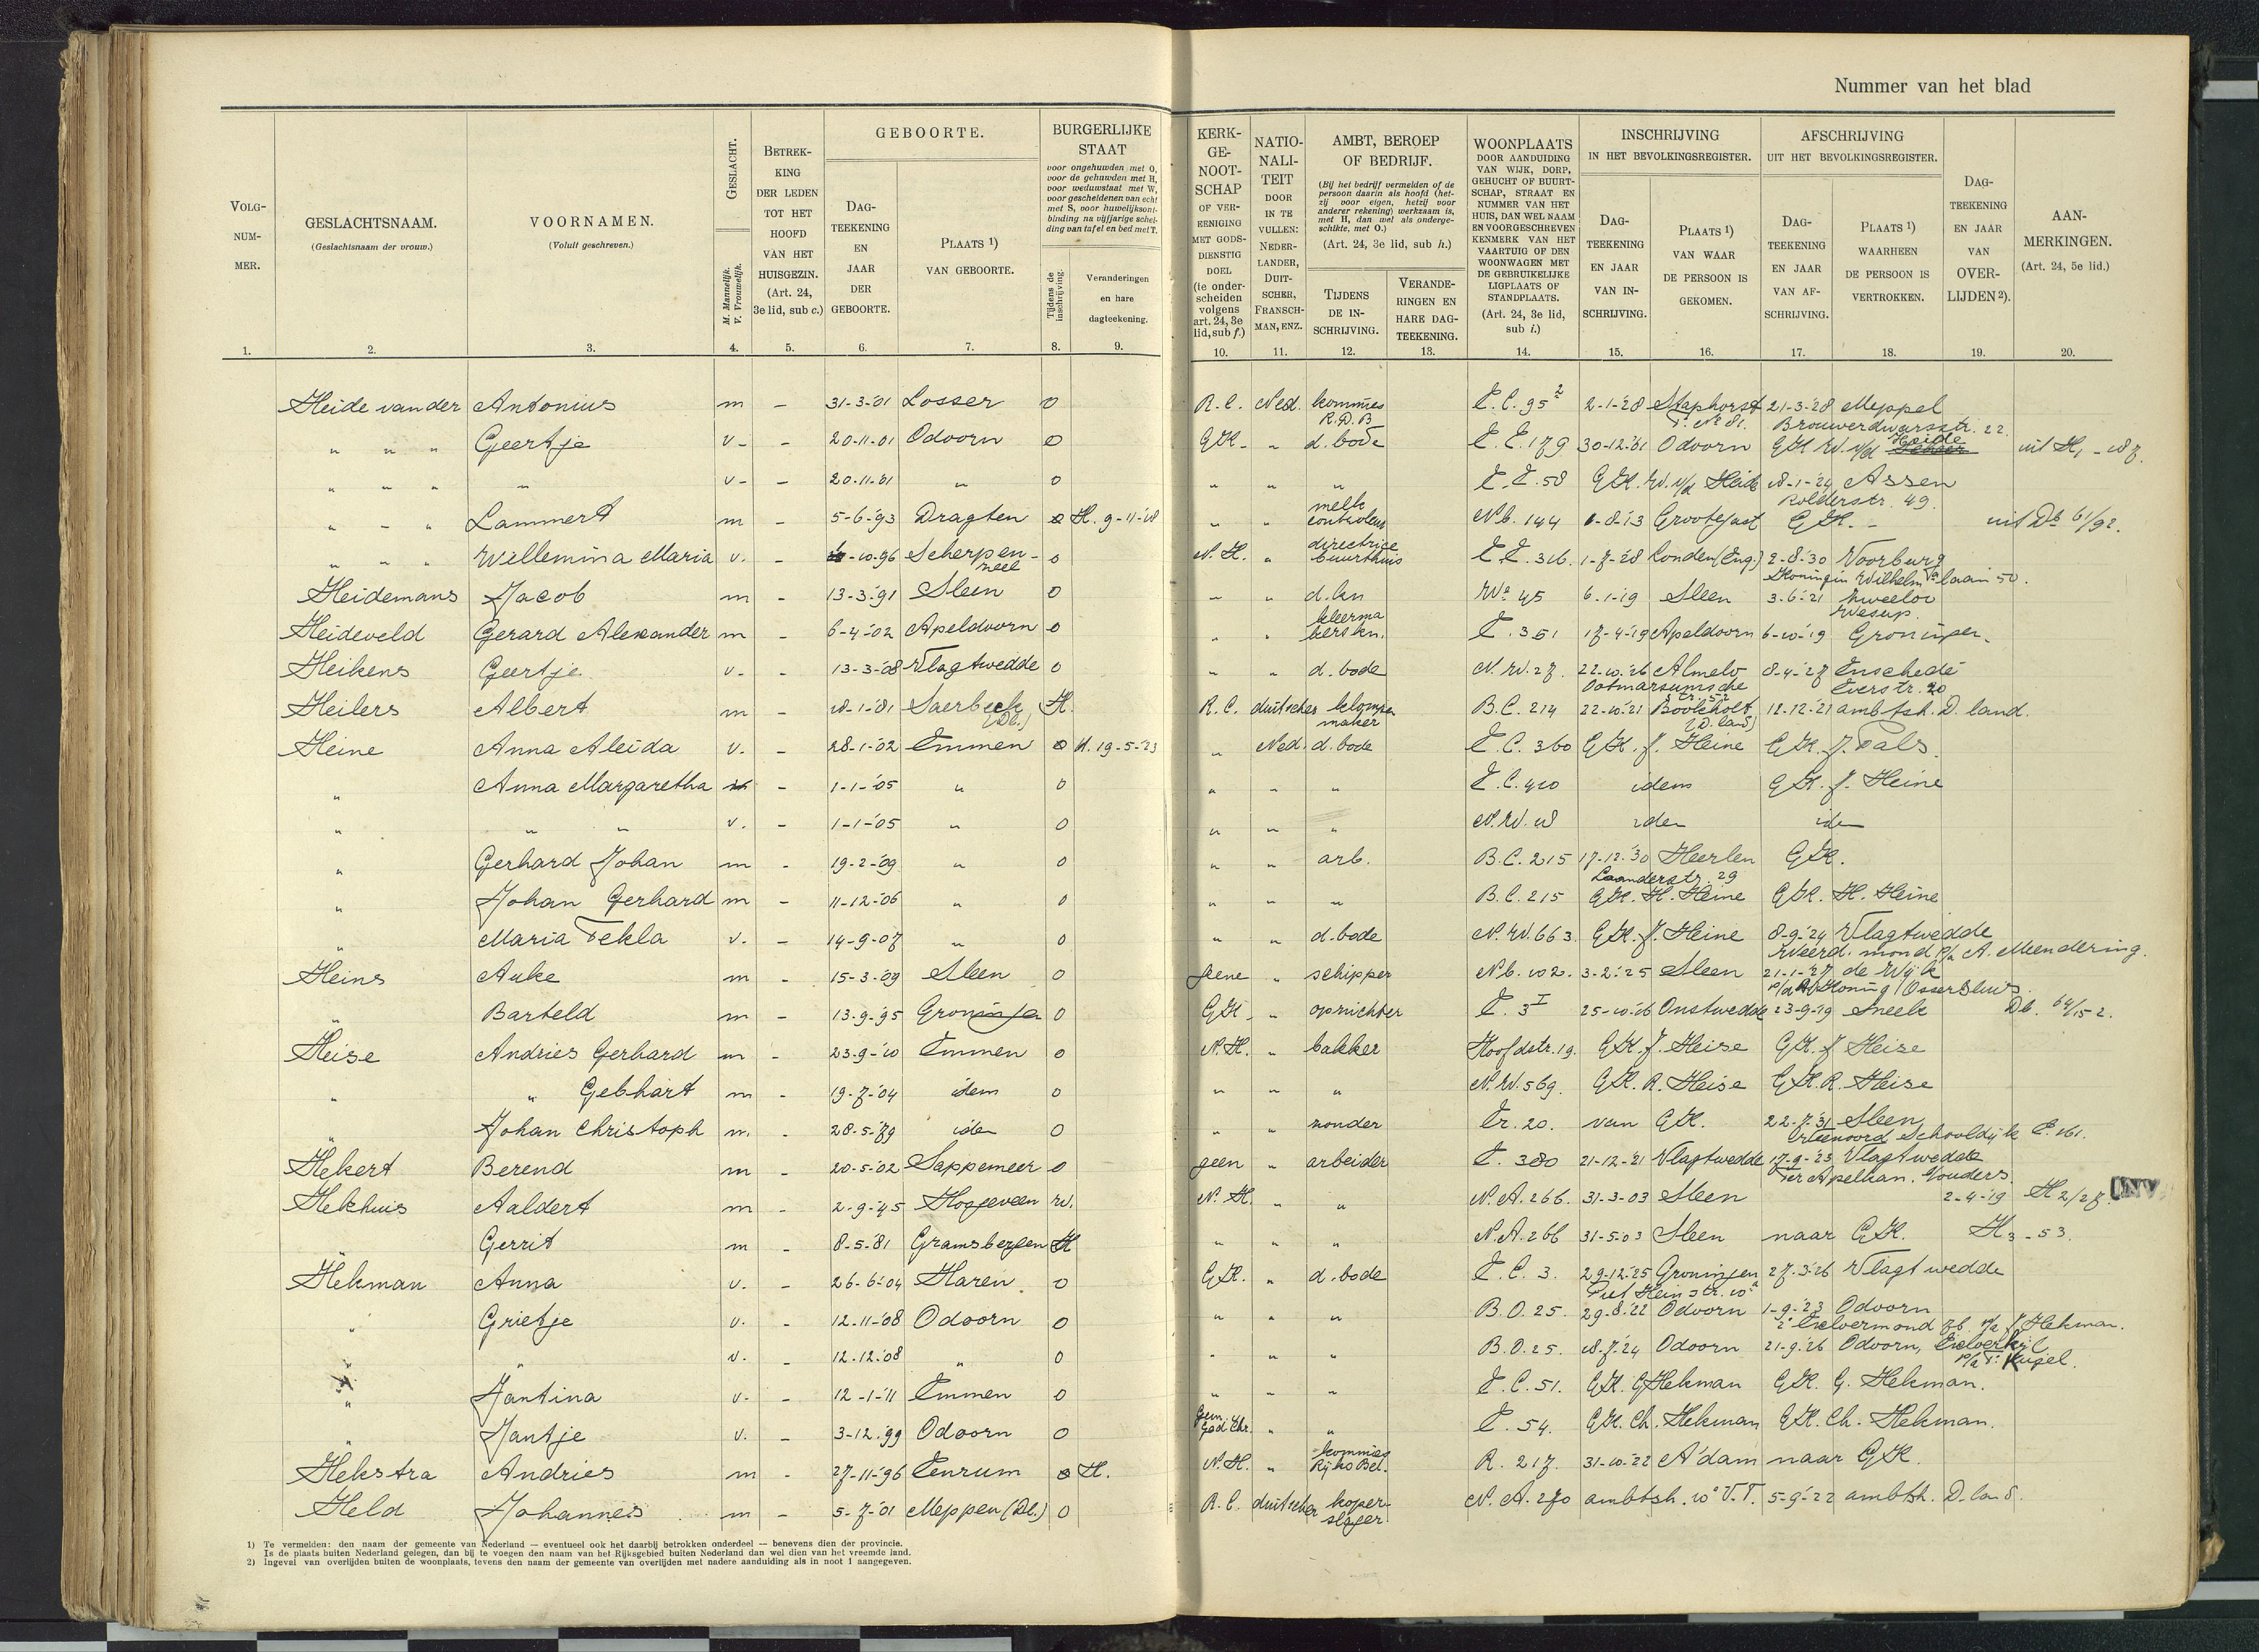 Nummer van het blad
VOLG-NUM-MER. GESLACHTSNAAM. (Geslachtsnaam der vrouw.) VOORNAMEN. (Voluit geschreven.) GESLACHT. M. Mannelijk. V. Vrouwelijk. BETREK-KING DER LEDEN TOT HET HOOFD VAN HET HUISGEZIN. (Art. 24, 3e lid, sub c.) GEBOORTE. DAG-TEEKENING EN JAAR DER GEBOORTE. PLAATS 1) VAN GEBOORTE. BURGERLIJKE STAAT voor ongehuwden met O, voor de gehuwden met H, voor weduwstaat met W, voor gescheidenen van echt met S, voor huwelijksont-binding na vijfjarige schei-ding van tafel en bed met T. Tijdens de inschrijving. Veranderingen en hare dagteekening.
KERK-GE-NOOT-SCHAP OF VER-EENIGING MET GODS-DIENSTIG DOEL (te onder-scheiden volgens art. 24, 3e lid, sub f.) NATIO-NALI-TEIT DOOR IN TE VULLEN: NEDER-LANDER, DUIT-SCHER, FRANSCH-MAN, ENZ. AMBT, BEROEP OF BEDRIJF. (Bij het bedrijf vermelden of de persoon daarin als hoofd (het-zij voor eigen, hetzij voor anderer rekening) werkzaam is, met H, dan wel als onderge-schikte, met O.) (Art. 24, 3e lid, sub h.) TIJDENS DE IN-SCHRIJVING. VERANDE-RINGEN EN HARE DAG-TEEKENING. WOONPLAATS DOOR AANDUIDING VAN WIJK, DORP, GEHUCHT OF BUURT-SCHAP, STRAAT EN NUMMER VAN HET HUIS, DAN WEL NAAM EN VOORGESCHREVEN KENMERK VAN HET VAARTUIG OF DEN WOONWAGEN MET DE GEBRUIKELIJKE LIGPLAATS OF STANDPLAATS. (Art. 24, 3e lid, sub i.) INSCHRIJVING IN HET BEVOLKINGSREGISTER. DAG-TEEKENING EN JAAR VAN IN-SCHRIJVING. PLAATS 1) VAN WAAR DE PERSOON IS GEKOMEN. AFSCHRIJVING UIT HET BEVOLKINGSREGISTER. DAG-TEEKENING EN JAAR VAN AF-SCHRIJVING. PLAATS 1) WAARHEEN DE PERSOON IS VERTROKKEN. DAG-TEEKENING EN JAAR VAN OVER-LIJDEN 2). AAN-MERKINGEN. (Art. 24, 5e lid.)
1. 2. 3. 4. 5. 6. 7. 8. 9. 10. 11. 12. 13. 14. 15. 16. 17. 18. 19. 20.
Heide van der Antonius m - 31-3-'01 Losser O R.C. Ned. kommies R.D.B E.C. 95² 2-1-'28 Staphorst 21-3-'28 Meppel Brouwerdwarsstr. 22
" " " Geertje v - 20-11-01 Odoorn O GK " d.bode E.E. 179 30-12-'01 Odoorn GK W. v/d Heide uit H1 - 187
" " " " v - 20-11-01 " O " " " E.E. 58 GK. W. v/d Heide 18-1-'24 Assen Rolderstr. 49.
" " " Lammert m - 5-6-'93 Dragten O H. 9-11-'18 " " melk controleur N.b. 144 1-8-'13 Grootegast GK. - uit Db 61/92.
" " " Willemina Maria v. - -10-96 Scherpenzeel O N.H. " directrice buurthuis E.E. 316. 1-7-'28 Londen (Eng.) 2-8-30 Voorburg Koningin Wilhelmalaan 50.
Heidemans Jacob m - 13-3-'91 Sleen O " " d.kn W² 45 6-1-19 Sleen 3-6-'21 Zweeloo Wesup.
Heideveld Gerard Alexander m - 6-4-'02 Apeldoorn O " " kleermakerskn. E. 351 17-4-'19 Apeldoorn 6-10-'19 Groningen.
Heikens Geertje v. - 13-3-'08 Vlagtwedde O " " d.bode N.W. 27. 22-10-'26 Almelo Ootmarsumsche str. 52 8-4-'27 Enschedé Everstr. 20
Heilers Albert m - 18-1-'81 Saerbeck (Dl.) H. R.C. duitscher klompenmaker B.C. 214 22-10-'21 Bookholt (D.land) 12-12-'21 ambtsh. D.land.
Heine Anna Aleida v. - 28-1-'02 Emmen O H. 19-5-'23 " Ned. d.bode E.C. 360 GK. J. Heine GK. J. Pals.
" Anna Margaretha - 1-1-'05 " O " " " E.C. 410 idem GK. J. Heine
" " " v. - 1-1-'05 " O " " " N.W. 18 idem idem
" Gerhard Johan m - 19-2-'09 " O " " arb. B.C. 215 17-12-'30 Heerlen Laanderstr. 29 GK.
" Johan Gerhard m - 11-12-'06 " O " " " B.C. 215 GK. H. Heine GK. H. Heine
" Maria Tekla v. - 14-9-07 " O " " d.bode N.W. 663. GK. J. Heine 8-9-'24 Vlagtwedde Weerd. mond p/a A. Meendering.
Heins Auke m - 15-3-'09 Sleen O geene " schipper N.b. 102. 3-2-'25 Sleen 21-1-'27 de Wijk p/a Koning Ossersluis
" Barteld m - 13-9-'95 Groningen O GK " opzichter E. 3I 25-10-'16 Onstwedde 23-9-'19 Sneek Db. 64/152.
Heise Andries Gerhard m - 23-9-'10 Emmen O N.H. " bakker Hoofdstr. 19. GK. J. Heise GK. J Heise
" " Gebhart m - 19-7-'04 idem O " " " N.W. 569. GK. R. Heise GK. R. Heise
" Johan Christoph m. - 28-5-'79 idem O " " zonder Er. 20. van GK. 22-7-'31 Sleen Erfscheidenoord Schooldijk E. 161.
Hekert Berend m - 20-5-'02 Sappemeer O geen " arbeider E. 380 21-12-'21 Vlagtwedde 17-9-'23 Vlagtwedde Ter Apelkan. Wouders.
Hekhuis Aaldert m - 2-9-'45 Hoogeveen W. N.H. " " N.A. 266. 31-3-03 Sleen 2-4-'19 H 2/27 INV.
" Gerrit m - 8-5-'81 Gramsbergen H " " " N.A. 266 31-5-03 Sleen naar GK. H3 - 53.
Hekman Anna v. - 26-6-'04 Haren O GK. " d.bode E.C. 3. 29-12-'25 Groningen Piet Heinstr. 10a 27-3-'26 Vlagtwedde
" Grietje v. - 12-11-'08 Odoorn O " " " B.O. 25. 29-8-'22 Odoorn 1-9-'23 Odoorn 2e Exloërmond 76 p/a J. Hekman.
" " v. - 12-12-'08 " O " " " B.O. 25. 18-7-'24 Odoorn 21-9-'26 Odoorn, Exloërkijl p/a T. Kuipel.
" Jantina v. - 12-1-'11 Emmen O " " " E.C. 51. GK. G Hekman GK. G. Hekman.
" Jantje v. - 3-12-'99 Odoorn O Gem. God. Chr. " " E. 54. GK. Ch. Hekman GK. Ch. Hekman.
Hekstra Andries m - 27-11-'96 Eenrum O H. N.H. " kommies Rijks Bel. R. 217. 31-10-'22 A'dam naar GK.
Held Johannes m - 5-7-'01 Meppen (Dl.) O R.C. duitscher koperslager N.A. 270 ambtsh. 10e V.T. 5-9-'22 ambtsh. D.land.
1) Te vermelden: den naam der gemeente van Nederland — eventueel ook het daarbij betrokken onderdeel — benevens dien der provincie.
Is de plaats buiten Nederland gelegen, dan bij te voegen den naam van het Rijksgebied buiten Nederland dan wel dien van het vreemde land.
2) Ingeval van overlijden buiten de woonplaats, tevens den naam der gemeente van overlijden met nadere aanduiding als in noot 1 aangegeven.